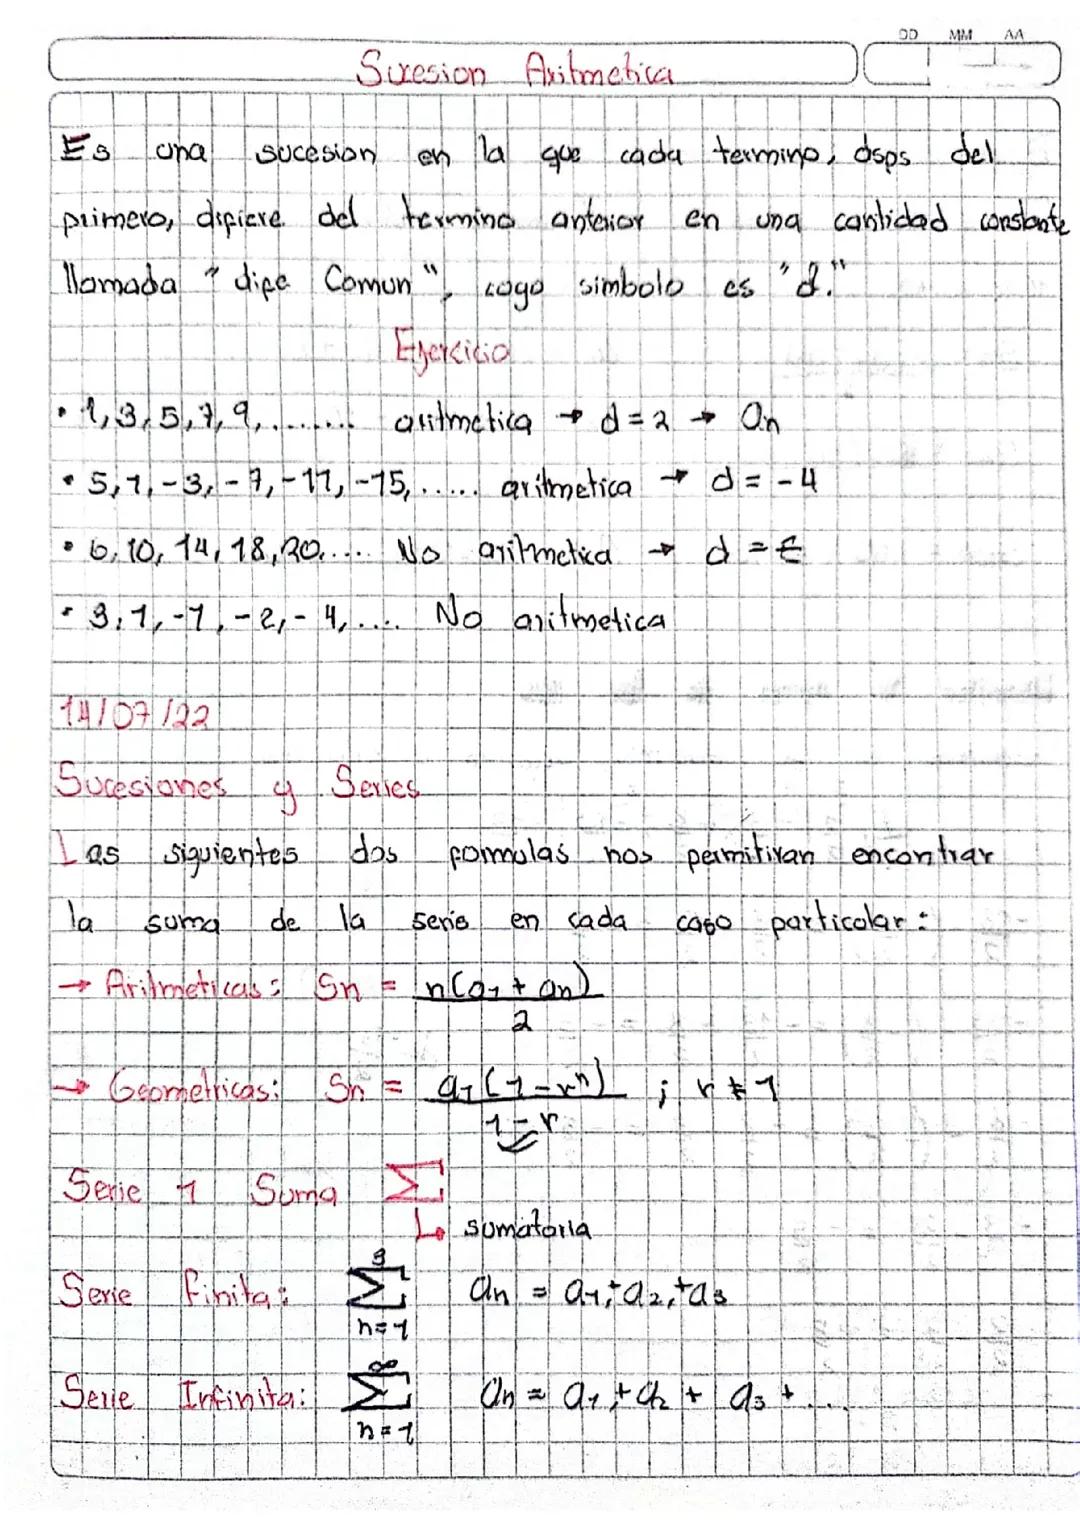 DD MM AA
Sucesion Aritmetica
Es una sucesion en la que cada termino, dsps del
primero, difiere del termino anterior en una cantidad constante
llamada "dife Comun", cogo simbolo es "d."
Ejercicio
• 1, 3, 5, 7, 9, ........ aritmetica → d = 2 → an
• 5, 1, -3, -7, -11, -15, ...... aritmetica → d = -4
• 6, 10, 14, 18, 20, .... No aritmetica → d =
• 3, 1, -1, -2, -4, .... No aritmetica
14/07/22
Sucesiones y Series
Las siguientes dos formulas nos permitiran encontrar
la suma de la serie en cada caso particolar:
→ Aritmeticas: Sn = n(a1 + an)
2
→ Geometricas: Sn = a1(1-rⁿ) ; r ≠ 1
1-r
Serie 1 Suma Σ
↳ sumatoria
3
Serie finita: Σ an = a1, + a2, + a3
n=1
∞
Serie Infinita: Σ an = a1, + a2 + a3 + ...
n=1